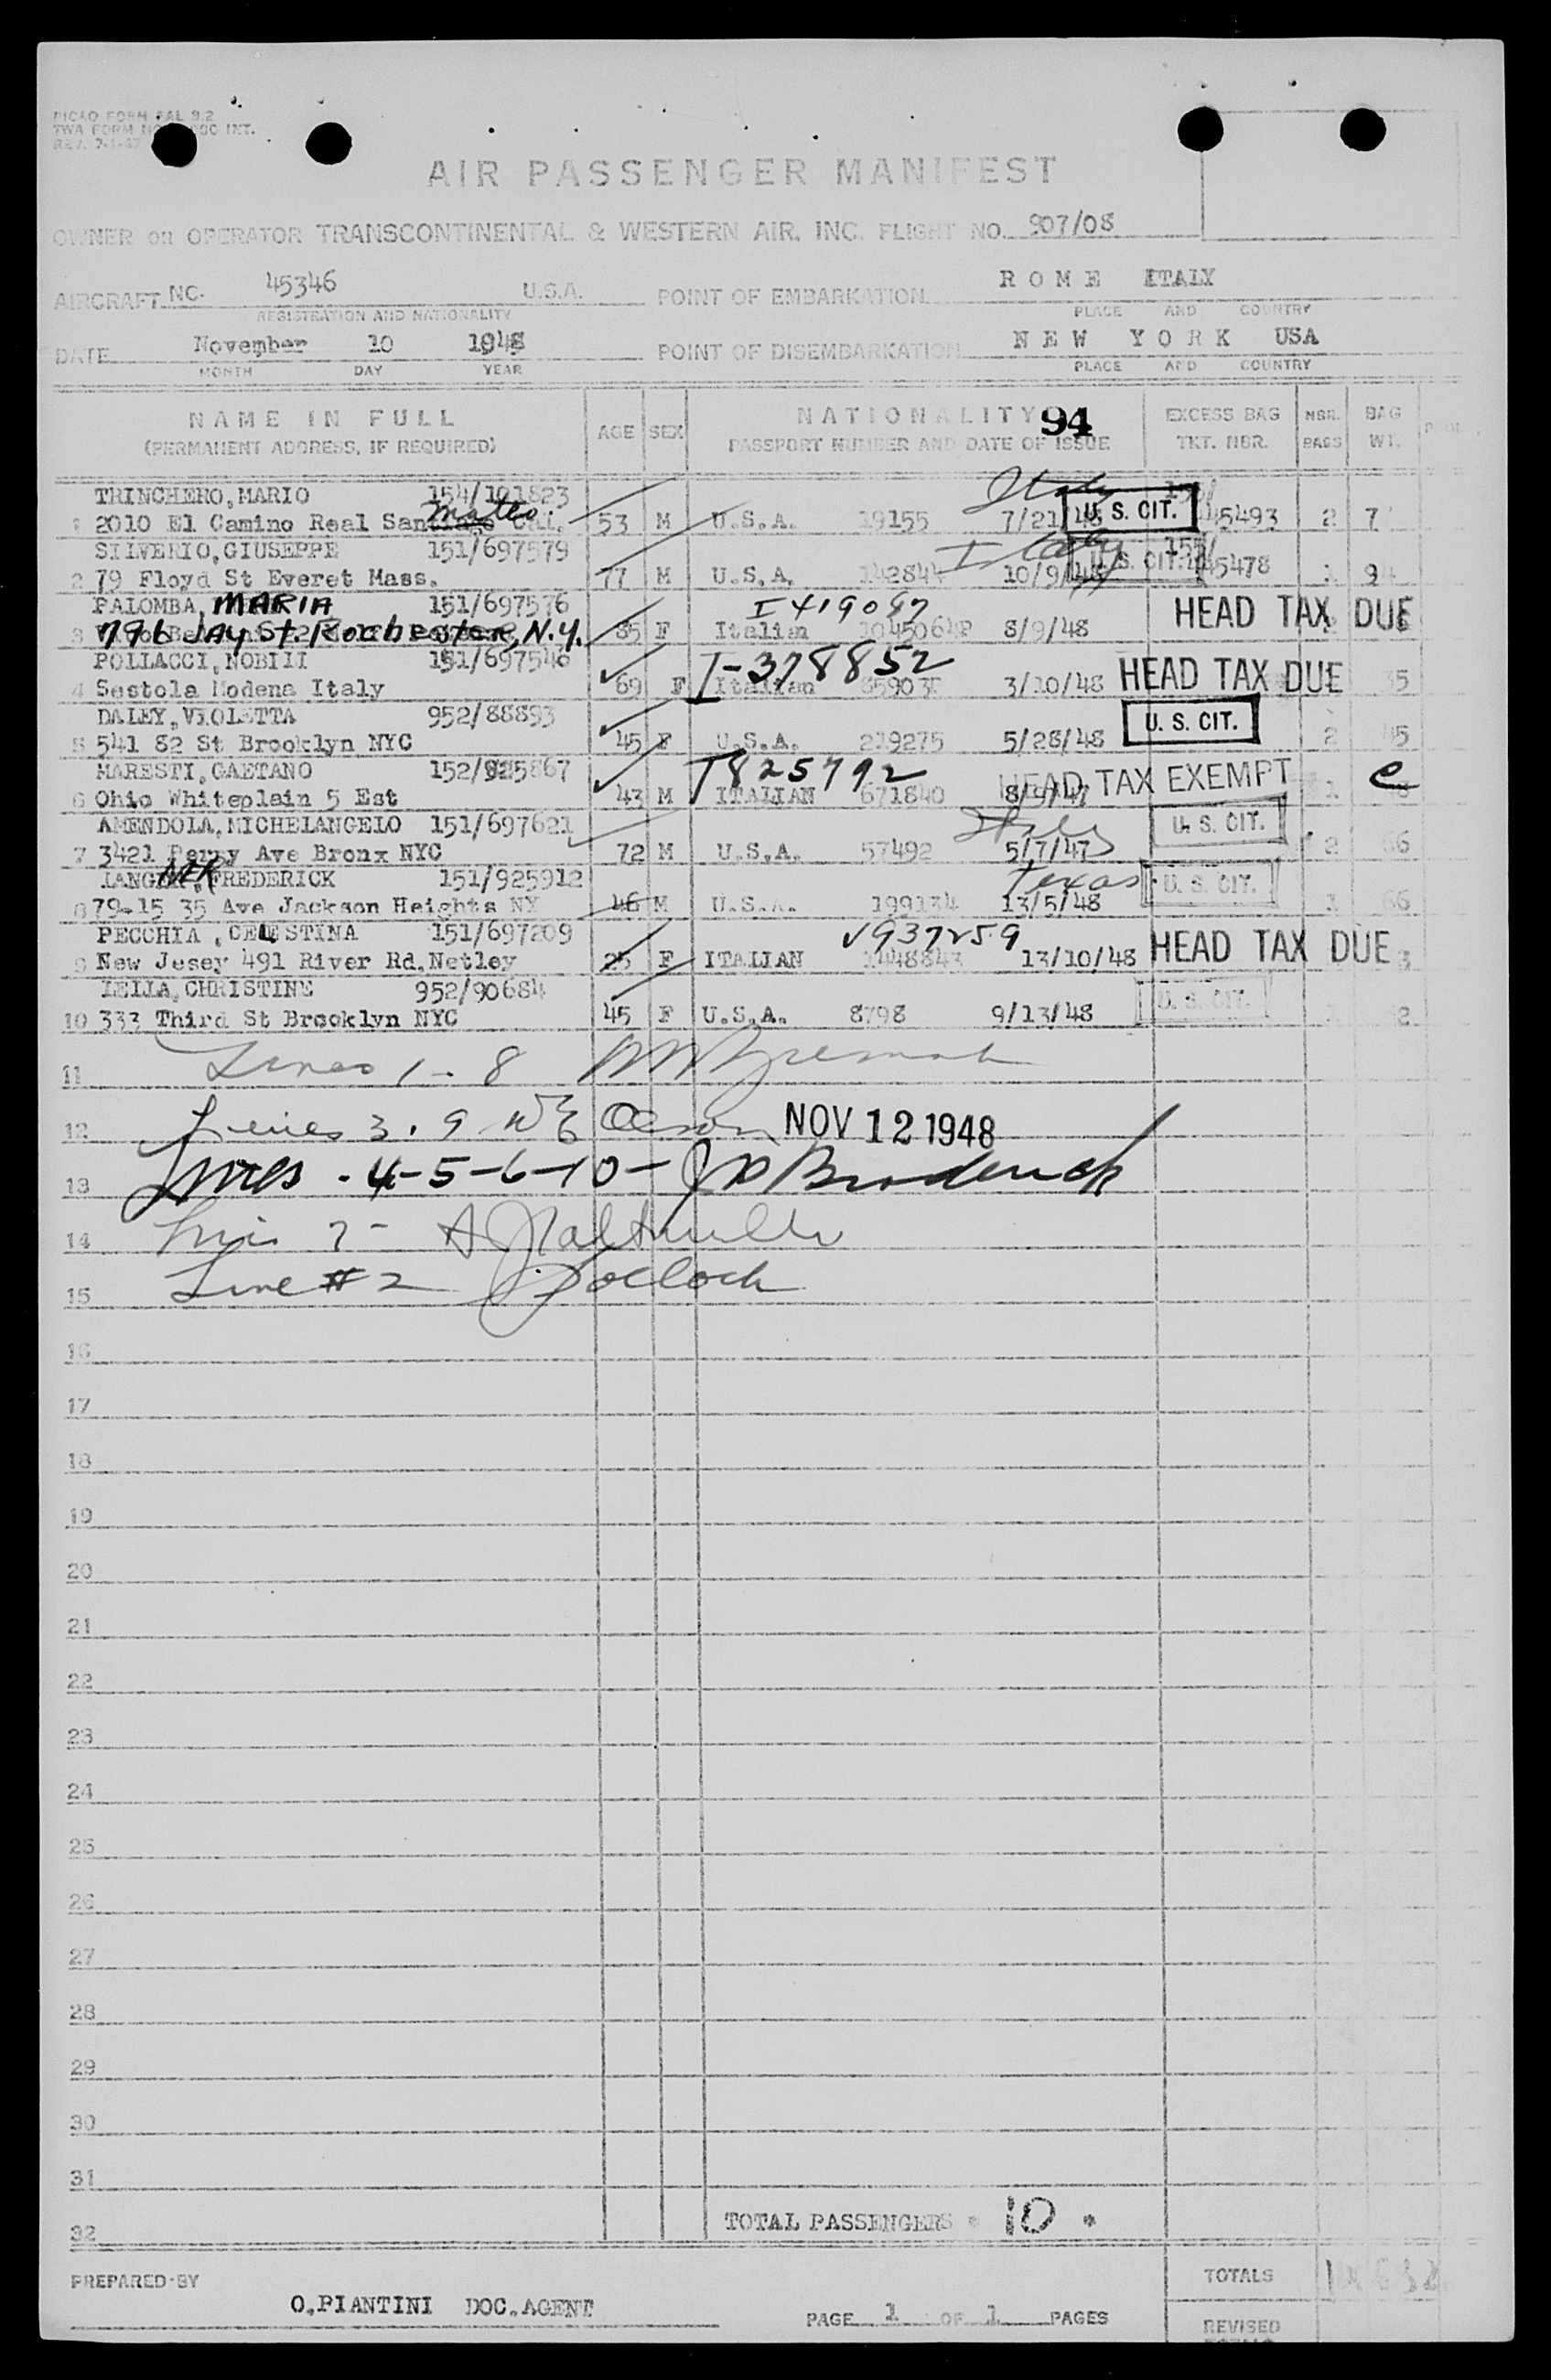 PICAO FORM FAL 9.2
TWA FORM
AIR PASSENGER MANIFEST
OWNER OR OPERATOR TRANSCONTINENTAL & WESTERN AIR. INC. FLIGHT NO. 907/08
AIRCRAFT NC. 45346 U.S.A. POINT OF EMBARKATION ROME ITALY
REGISTRATION AND NATIONALITY PLACE AND COUNTRY
DATE November 10 1948 POINT OF DISEMBARKATION NEW YORK USA
MONTH DAY YEAR PLACE AND COUNTRY
NAME IN FULL AGE SEX NATIONALITY 94 EXCESS BAG NBR. BAG
(PERMANENT ADDRESS, IF REQUIRED) PASSPORT NUMBER AND DATE OF ISSUE TKT. NBR. PASS WT.
TRINCHERO, MARIO 154/101823 Italy
Mateo
1 2010 El Camino Real 53 M U.S.A. 19155 7/21/48 U. S. CIT. 45493 2 7
SILVERIO, GIUSEPPE 151/697579 Italy
2 79 Floyd St Everet Mass. 77 M U.S.A. 142844 10/9/48 U. S. CIT. 45478 1 9
PALOMBA, MARIA 151/697576 I 419087
3 796 JAY St. Rochester, N.Y. F Italian 8/9/48 HEAD TAX DUE
POLLACCI, NOBILI 151/697546 I-378852
4 Sestola Modena Italy 69 F Italian 3/10/48 HEAD TAX DUE
DALEY, VIOLETTA 952/88893
5 541 82 St Brooklyn NYC 45 F U.S.A. 279275 5/28/48 U. S. CIT. 2
MARESTI, GAETANO 152/925867 I 825792
6 Ohio Whiteplain 5 Est 43 M ITALIAN 671840 8/9/47 HEAD TAX EXEMPT 1
AMENDOLA, MICHELANGELO 151/697621 Italy
7 3421 Perry Ave Bronx NYC 72 M U.S.A. 57492 5/7/47 U. S. CIT. 2 66
FREDERICK 151/925912 Texas
8 79-15 35 Ave Jackson Heights NY 46 M U.S.A. 199134 13/5/48 U. S. CIT. 66
PECCHIA, CELESTINA 151/697209 V937259
9 New Jesey 491 River Rd, Netley 25 F ITALIAN 1448843 13/10/48 HEAD TAX DUE
LEILA, CHRISTINE 952/90684
10 333 Third St Brooklyn NYC 45 F U.S.A. 8798 9/13/48 U. S. CIT.
11 Lines 1 - 8
12 Lines 3. 9 NOV 12 1948
13 Lines - 4-5-6-10- J Broderick
14
15 Line # 2 Pollock
16
17
18
19
20
21
22
23
24
25
26
27
28
29
30
31
32 TOTAL PASSENGERS * 10 *
PREPARED BY TOTALS
O. PIANTINI DOC. AGENT PAGE 1 OF 1 PAGES
REVISED